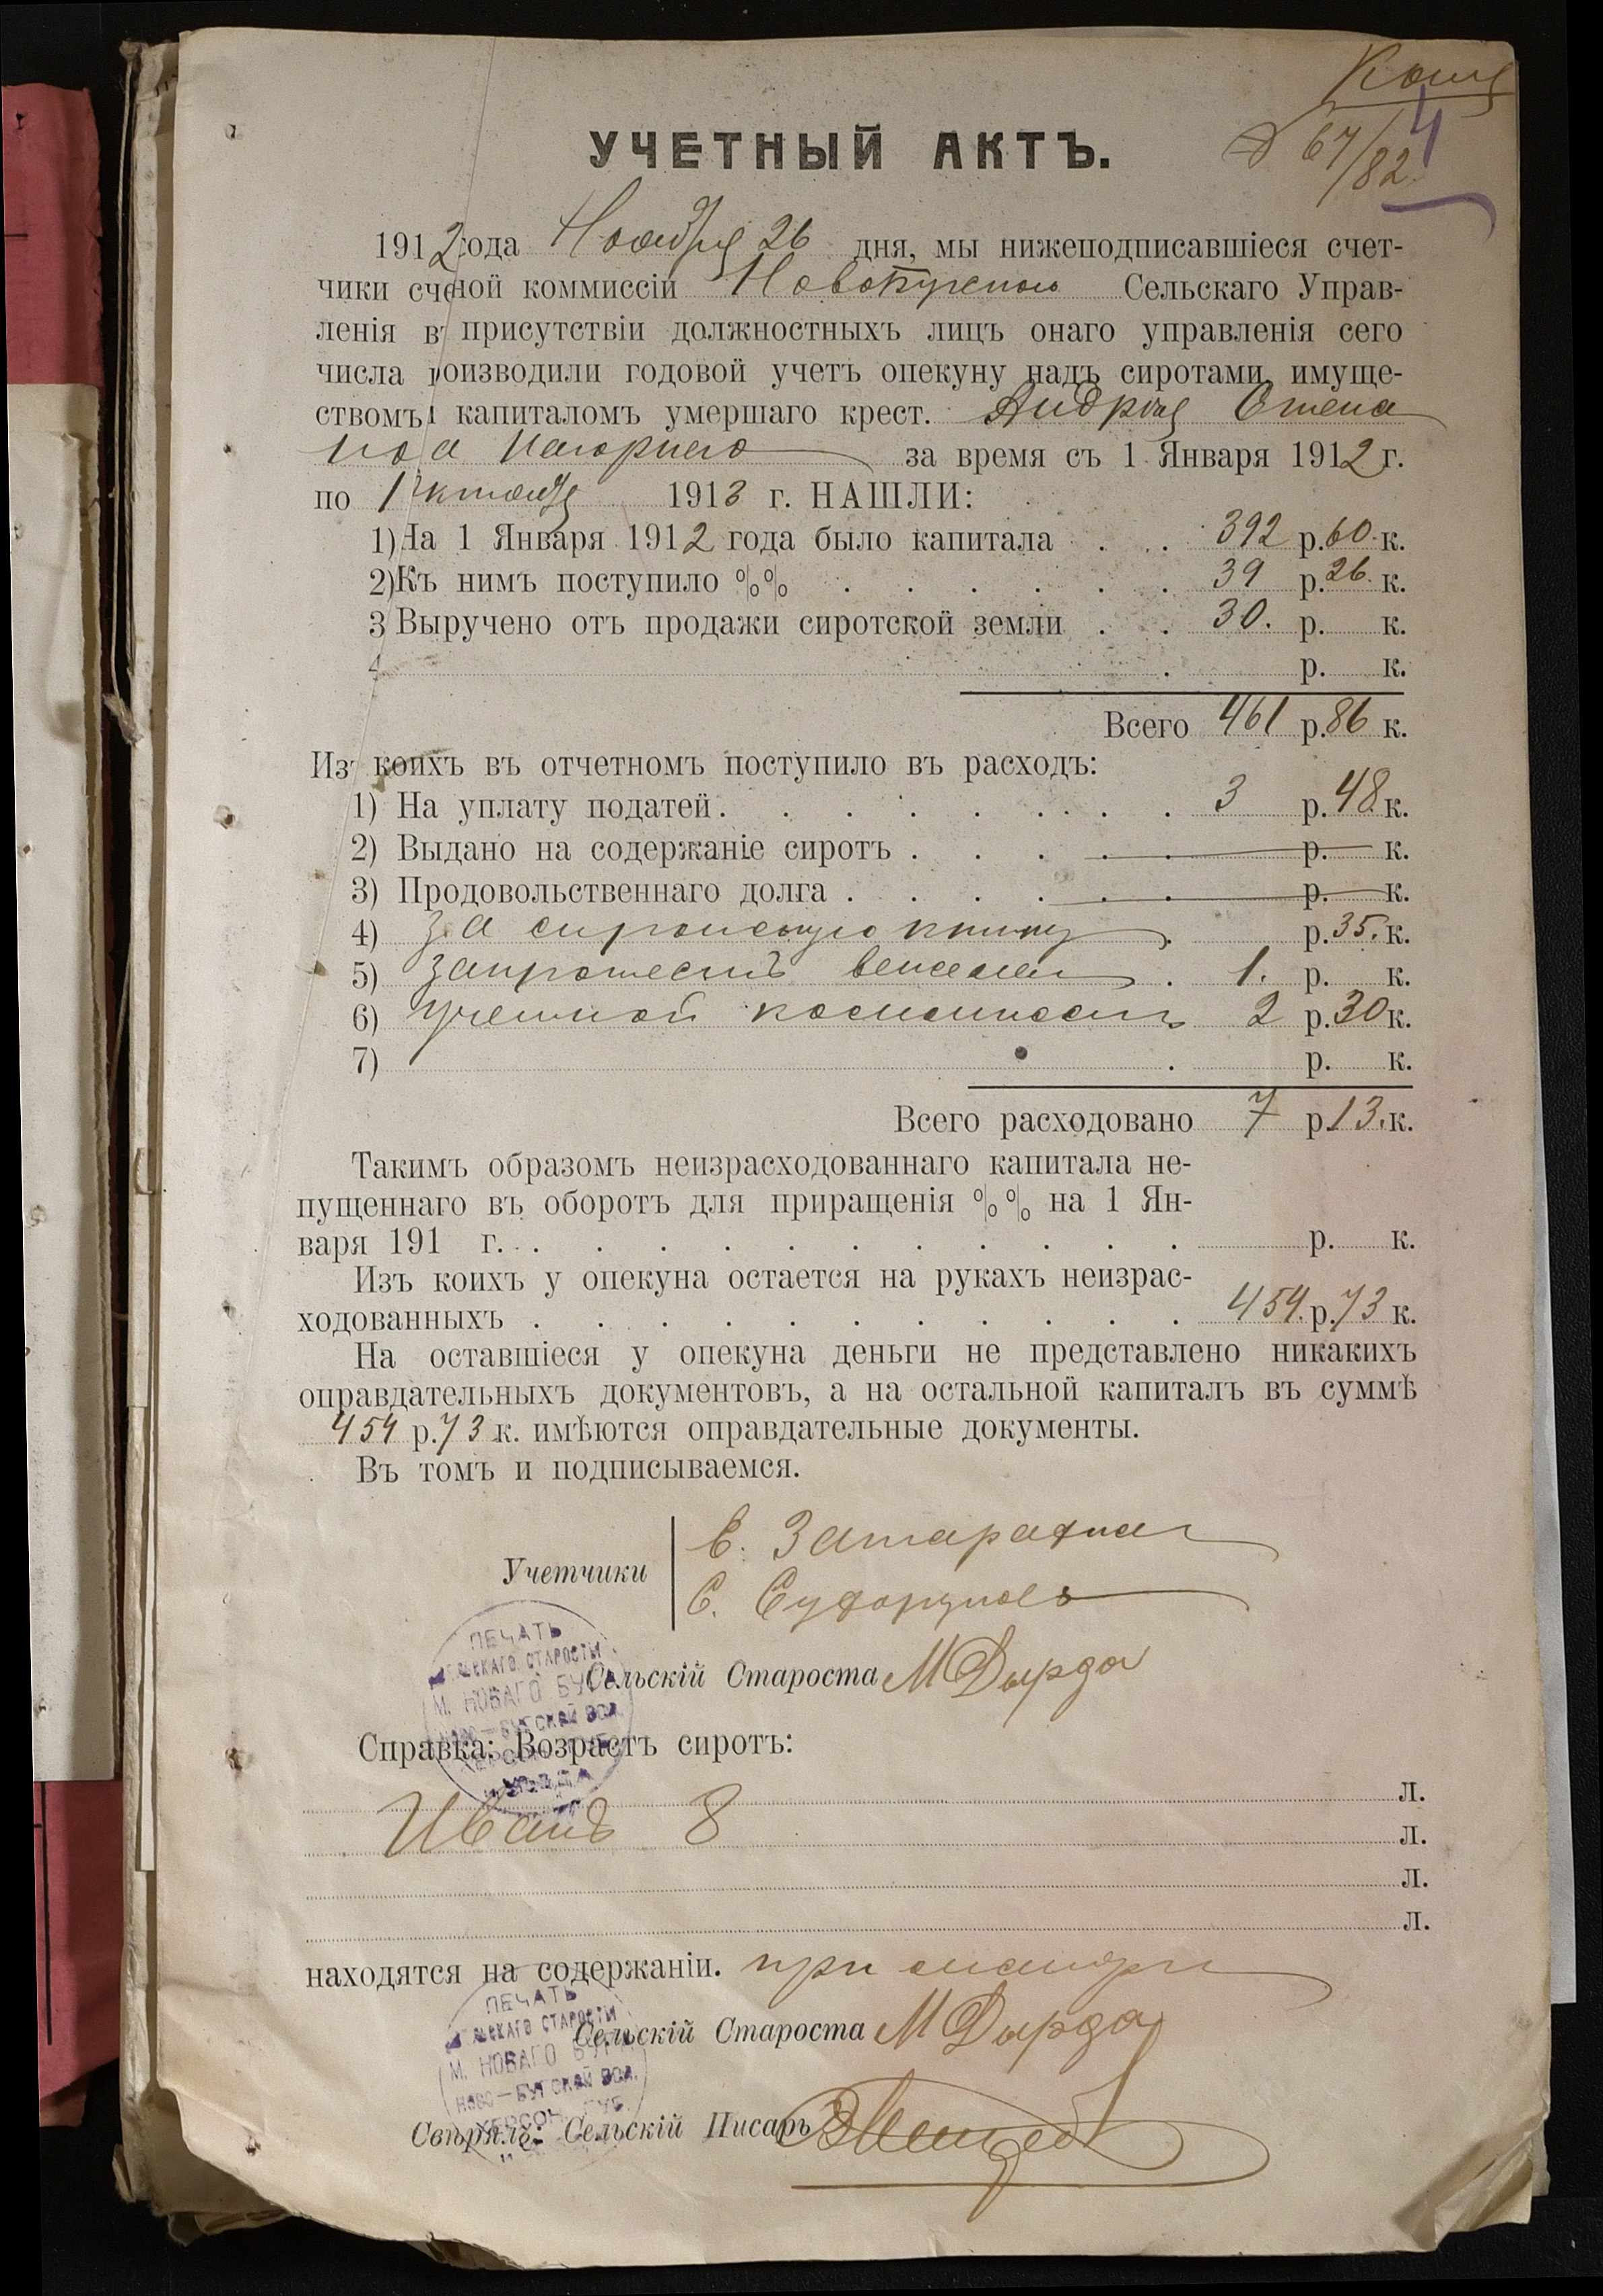 Копія
67/82
4
УЧЕТНЫЙ АКТЪ.
1912 года Ноября 26 дня, мы нижеподписавшіеся счет-
чики счетной коммиссіи Новобугскаго Сельскаго Управ-
ленія въ присутствіи должностныхъ лицъ онаго управленія сего
числа производили годовой учетъ опекуну надъ сиротами имуще-
ствомъ и капиталомъ умершаго крест. Андрея Степа
нова Нагорнаго за время съ 1 Января 1912 г.
по 1 Октября 1913 г. НАШЛИ:
1) На 1 Января 1912 года было капитала . . 392 р. 60 к.
2) Къ нимъ поступило %% . . . . . . 39 р. 26 к.
3 Выручено отъ продажи сиротской земли . . 30. р. к.
4 . р. к.
Всего 461 р. 86 к.
Изъ коихъ въ отчетномъ поступило въ расходъ:
1) На уплату податей . . . . . . . . 3 р. 48 к.
2) Выдано на содержаніе сиротъ . . . . . р. к.
3) Продовольственнаго долга . . . . . . р. к.
4) за сиротскую книгу . р. 35. к.
5) запротестъ векселей . 1. р. к.
6) учетной коммиссіи 2 р. 30 к.
7) . р. к.
Всего расходовано 7 р. 13. к.
Такимъ образомъ неизрасходованнаго капитала не-
пущеннаго въ оборотъ для приращенія %% на 1 Ян-
варя 191 г. . . . . . . . . . . . р. к.
Изъ коихъ у опекуна остается на рукахъ неизрас-
ходованныхъ . . . . . . . . . . . 454. р. 73 к.
На оставшіеся у опекуна деньги не представлено никакихъ
оправдательныхъ документовъ, а на остальной капиталъ въ суммѣ
454 р. 73 к. имѣются оправдательные документы.
Въ томъ и подписываемся.
Учетчики
С.
Сельскій Староста М Дырда
ПЕЧАТЬ
СЕЛЬСКАГО СТАРОСТЫ
М. НОВАГО БУГА
НОВО-БУГСКОЙ ВОЛ.
ХЕРСОН. ГУБ.
Справка: Возрастъ сиротъ:
л.
Иванъ 8 л.
л.
л.
находятся на содержаніи. при матери
Сельскій Староста М Дырда
ПЕЧАТЬ
СЕЛЬСКАГО СТАРОСТЫ
М. НОВАГО БУГА
НОВО-БУГСКОЙ ВОЛ.
ХЕРСОН. ГУБ.
Свѣрялъ: Сельскій Писарь